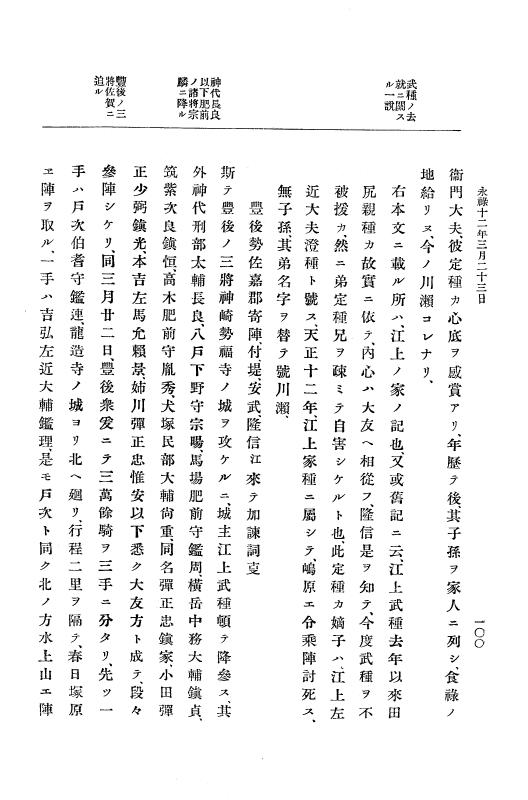 永祿十二年三月二十三日
一〇〇
武種ノ去
就ニ關ス
ル一說
神代長良
以下肥前
ノ諸將宗
麟ニ降ル
豐後ノ三
將佐賀ニ
迫ル
衞門大夫彼定種カ心底ヲ感賞アリ、年歷テ後其子孫ヲ家人ニ列シ、食祿ノ
地給リヌ、今ノ川瀨コレナリ、
右本文ニ載ル所ハ、江上ノ家ノ記也、又或舊記ニ云、江上武種去年以來田
尻親種カ故實ニ依テ、內心ハ大友ヘ相從フ、隆信是ヲ知テ、今度武種ヲ不
被援カ、然ニ弟定種兄ヲ疎ミテ自害シケルト也、此定種カ嫡子ハ、江上左
近大夫澄種ト號ス、天正十二年、江上家種ニ屬シテ、嶋原エ令乘陣討死ス、
無子孫、其弟名字ヲ替テ號川瀨、
豐後勢佐嘉郡寄陣付堤安武隆信江來テ加諫詞叓
斯テ豐後ノ三將神崎勢福寺ノ城ヲ攻ケルニ、城主江上武種頓テ降參ス、其
外神代刑部大輔長良、八戶下野守宗暘、馬場肥前守鑑周、橫岳中務大輔鎭貞、
筑紫次良鎭恒、高木肥前守胤秀、犬塚民部大輔尙重、同名彈正忠鎭家、小田彈
正少弼鎭光、本吉左馬允賴景、姉川彈正忠惟安以下悉ク大友方ト成テ、段々
參陣シケリ、同三月廿二日、豐後衆爰ニテ三萬餘騎ヲ三手ニ分タリ、先ツ一
手ハ戶次伯耆守鑑連、龍造寺ノ城ヨリ北ヘ廻リ、行程二里ヲ隔テ、春日塚原
ヱ陣ヲ取ル、一手ハ吉弘左近大輔鑑理、是モ戶次ト同ク北ノ方水上山エ陣